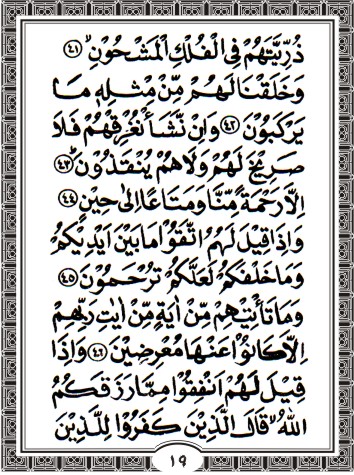 ذُرِّيَّتَهُمْ فِي الْفُلْكِ الْمَشْحُوْنِ ۙ﴿٤١﴾
وَخَلَقْنَا لَهُمْ مِّنْ مِّثْلِهٖ مَا
يَرْكَبُوْنَ ﴿٤٢﴾ وَاِنْ نَّشَاْ نُغْرِقْهُمْ فَلَا
صَرِيْخَ لَهُمْ وَلَاهُمْ يُنْقَذُوْنَ ۙ﴿٤٣﴾
اِلَّا رَحْمَةً مِّنَّا وَمَتَاعًا اِلٰى حِيْنٍ ﴿٤٤﴾
وَاِذَا قِيْلَ لَهُمُ اتَّقُوْا مَا بَيْنَ اَيْدِيْكُمْ
وَمَا خَلْفَكُمْ لَعَلَّكُمْ تُرْحَمُوْنَ ﴿٤٥﴾
وَمَا تَأْتِيْهِمْ مِّنْ اٰيَةٍ مِّنْ اٰيٰتِ رَبِّهِمْ
اِلَّا كَانُوْا عَنْهَا مُعْرِضِيْنَ ﴿٤٦﴾ وَاِذَا
قِيْلَ لَهُمْ اَنْفِقُوْا مِمَّا رَزَقَكُمُ
اللّٰهُ ۙ قَالَ الَّذِيْنَ كَفَرُوْا لِلَّذِيْنَ
١٩